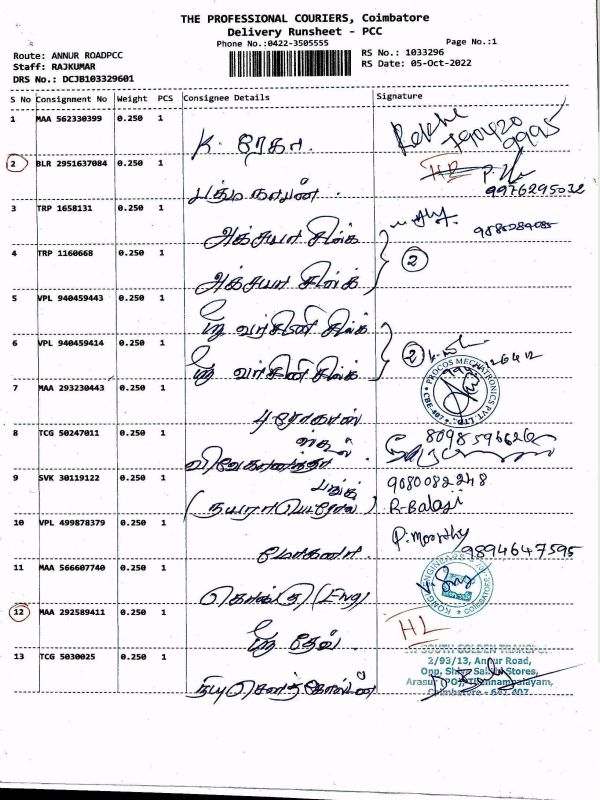 THE PROFESSIONAL COURIERS, Coimbatore
Delivery Runsheet - PCC
Phone No.:0422-3505555
Page No.:1
Route: ANNUR ROADPCC
RS No.: 1033296
Staff: RAJKUMAR
RS Date: 05-Oct-2022
DRS No.: DCJB103329601
S No Consignment No Weight PCS Consignee Details Signature
1 MAA 562330399 0.250 1
K. ரேகா. Rekha
9995
2 BLR 2951637084 0.250 1
பத்மநாபன். 9976295032
3 TRP 1658131 0.250 1
அக்சயா சில்க்
4 TRP 1160668 0.250 1 2
அக்சயா சில்க்
5 VPL 940459443 0.250 1
ஸ்ரீ வர்சினி சில்க்
6 VPL 940459414 0.250 1 2
ஸ்ரீ வர்சினி சில்க்
PROCOS MECHATRONICS PVT LTD
CBE-407
7 MAA 293230443 0.250 1
புரோகாஸ்
8 TCG 50247011 0.250 1 8098596626
விவேகானந்தா
9 SVK 30119122 0.250 1 9080082248
பங்க்
R-Balaji
10 VPL 499878379 0.250 1 P. Moorthy
மோகனா. 9894647595
11 MAA 566607740 0.250 1
(Eng)
COIMBATORE
12 MAA 292589411 0.250 1
ஸ்ரீ தேவ். HL
13 TCG 5030025 0.250 1
2/93/13, Annur Road,
Stores,